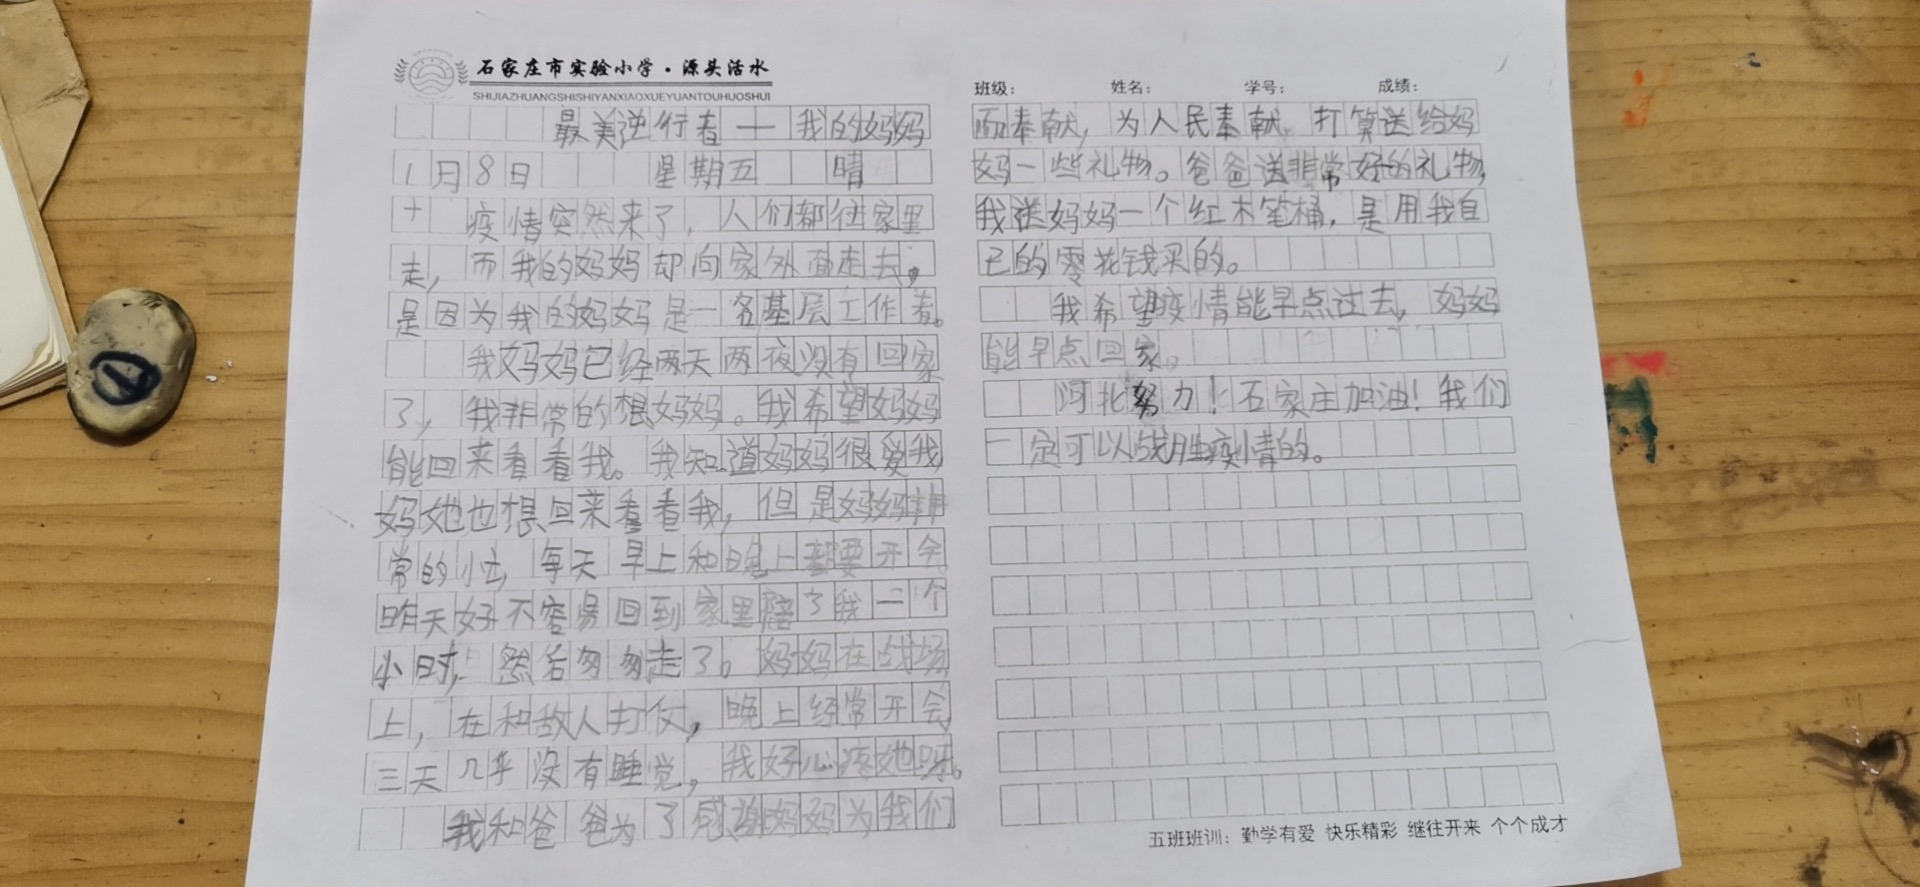 石家庄市实验小学·源头活水
SHIJIAZHUANGSHISHIYANXIAOXUEYUANTOUHUOSHUI
最美逆行者——我的妈妈
1月8日 星期五 晴
疫情突然来了，人们都往家里
走，而我的妈妈却向家外面走去，
是因为我的妈妈是一名基层工作者。
我妈妈已经两天两夜没有回家
了，我非常的想妈妈。我希望妈妈
能回来看看我。我知道妈妈很爱我
妈她也想回来看看我，但是妈妈非
常的忙，每天早上和晚上都要开会
昨天好不容易回到家里陪了我一个
小时，然后匆匆走了。妈妈在战场
上，在和敌人打仗，晚上经常开会
三天几乎没有睡觉，我好心疼她呀。
我和爸爸为了感谢妈妈为我们
班级： 姓名： 学号： 成绩：
而奉献，为人民奉献，打算送给妈
妈一些礼物。爸爸送非常好的礼物，
我送妈妈一个红木笔桶，是用我自
己的零花钱买的。
我希望疫情能早点过去，妈妈
能早点回家。
河北努力！石家庄加油！我们
一定可以战胜疫情的。
五班班训：勤学有爱 快乐精彩 继往开来 个个成才